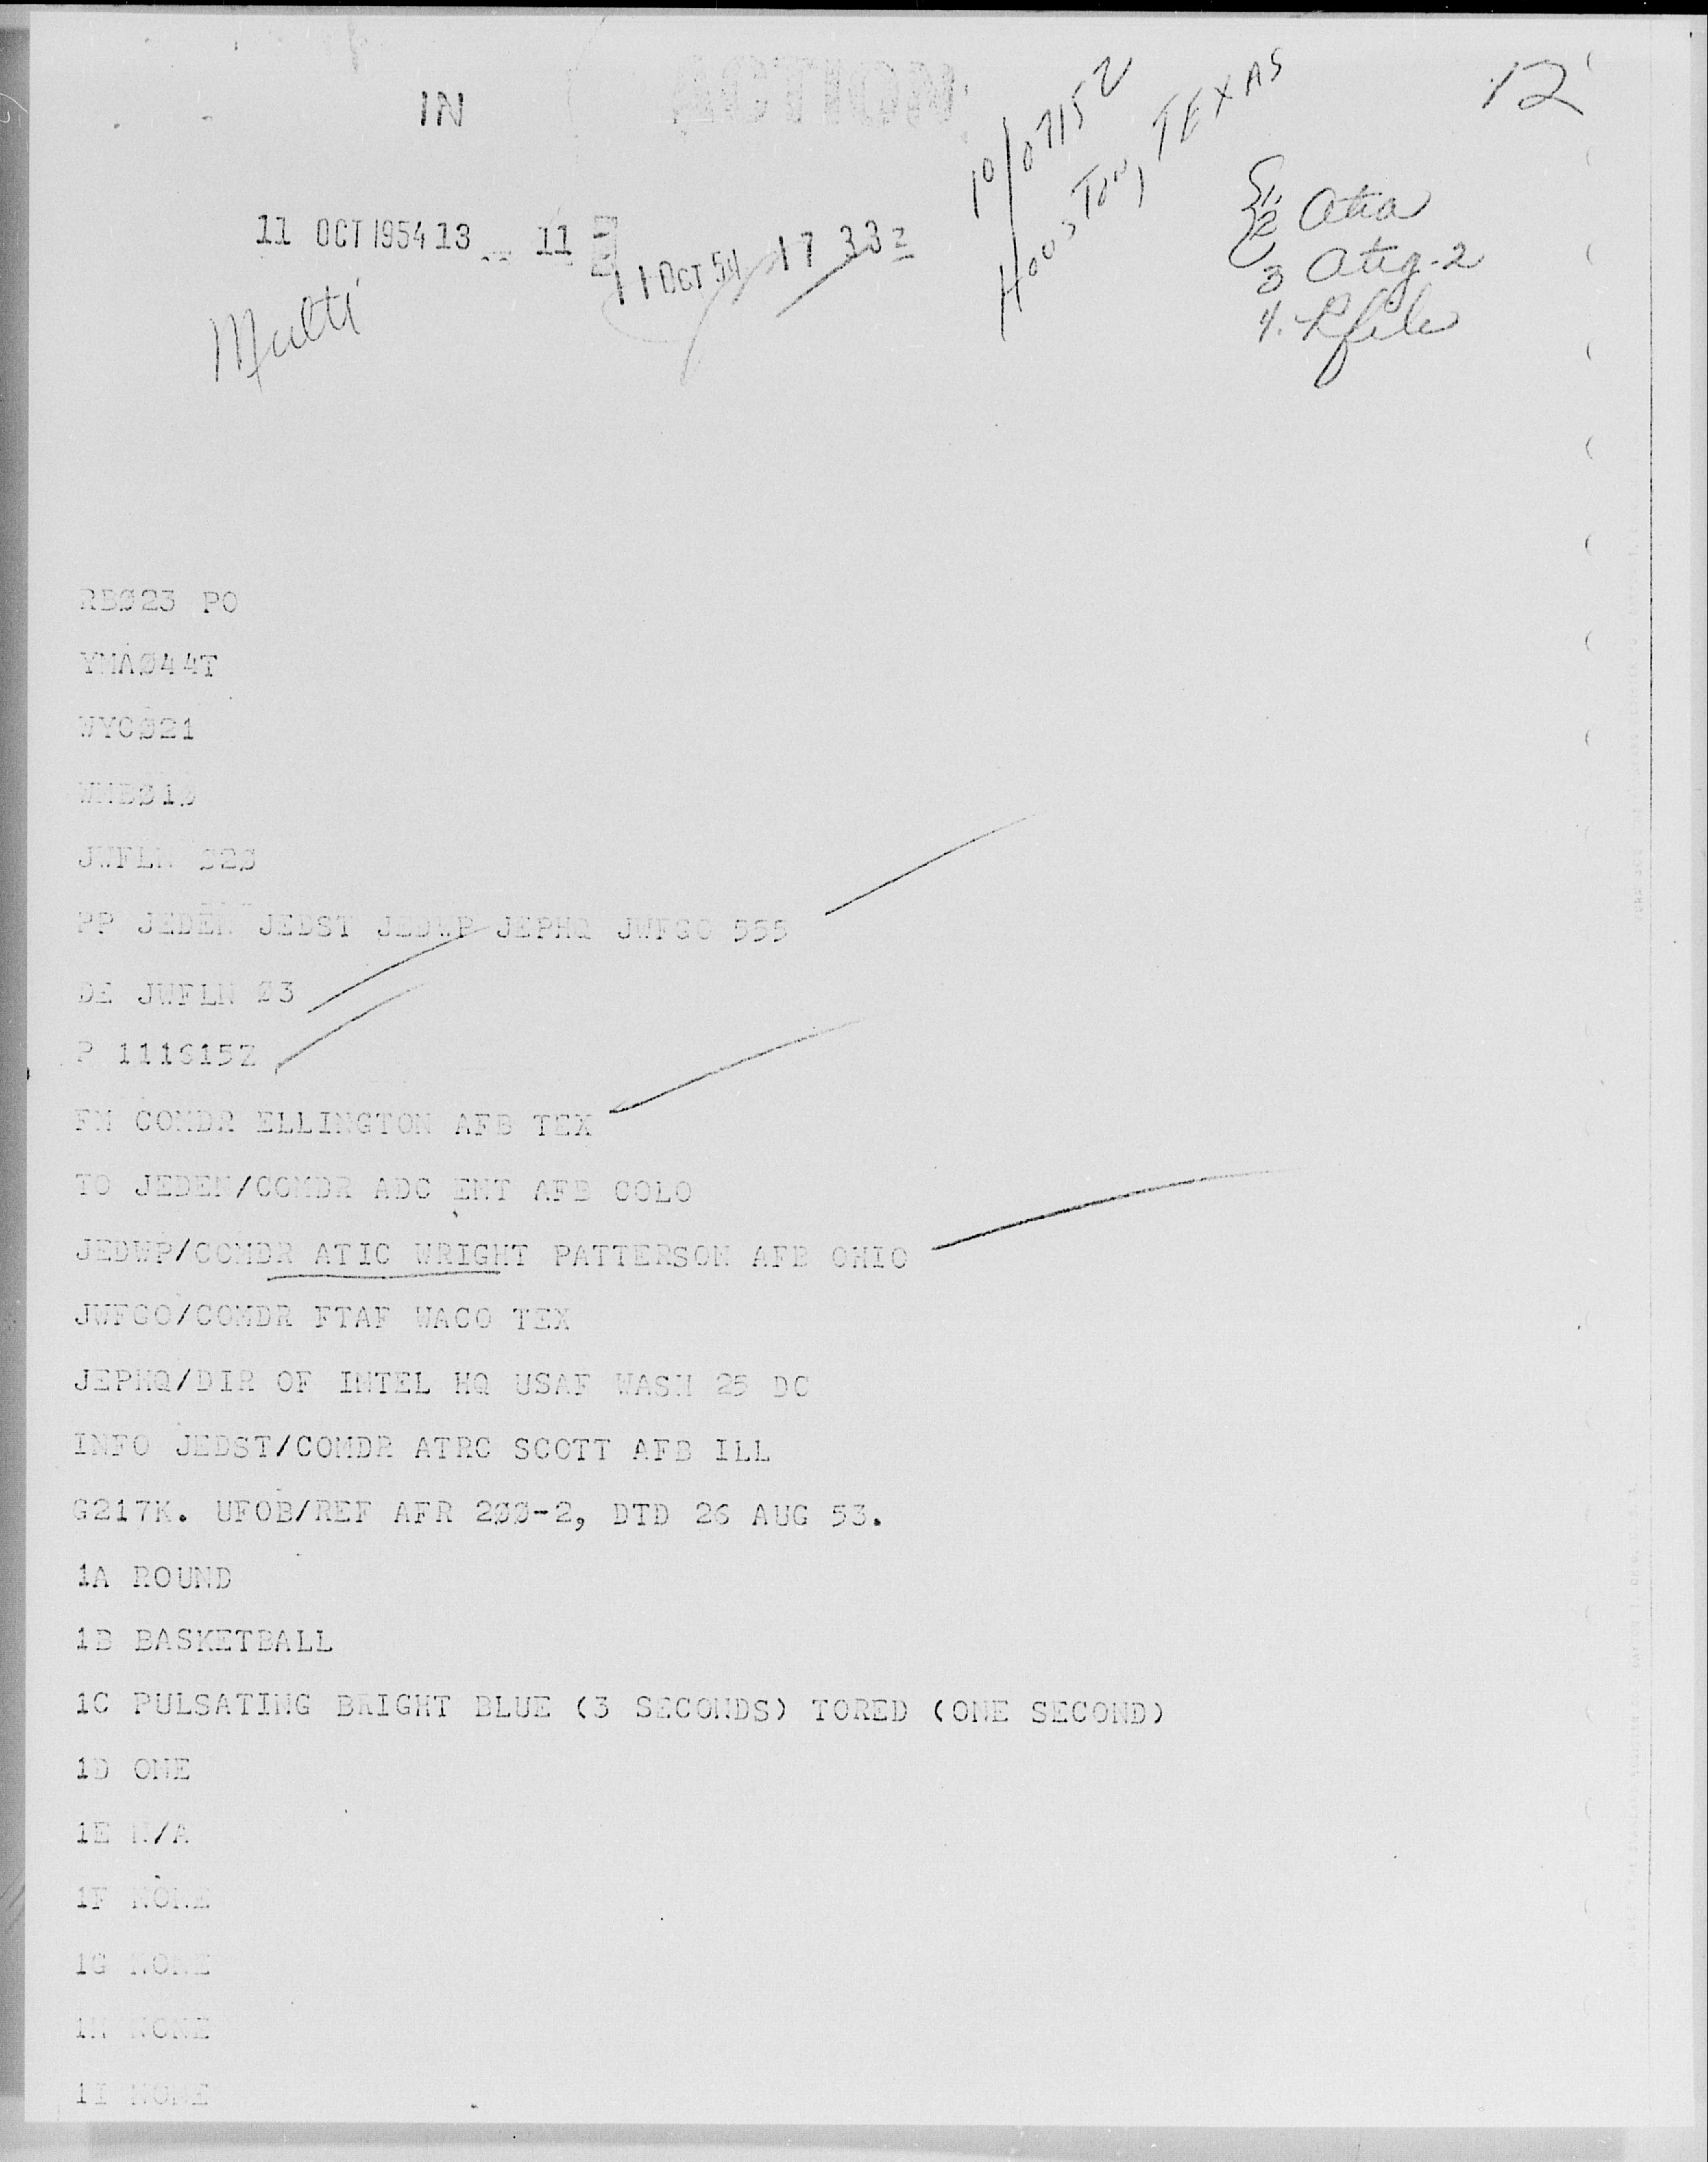 IN
ACTION
10/0715Z
HOUSTON, TEXAS
12
11 OCT 1954 13 11
11 OCT 54 17 33z
1.
2 Atia
3 Atig-2
4.
Multi
RBØ23 PO
YMAØ44T
WYCØ21
JWFLN
PP JEDEN JEDST JEDWP JEPHQ JWFGO 555
DE JWFLN Ø3
P 111615Z
FM COMDR ELLINGTON AFB TEX
TO JEDEN/COMDR ADC ENT AFB COLO
JEDWP/COMDR ATIC WRIGHT PATTERSON AFB OHIO
JWFGO/COMDR FTAF WACO TEX
JEPHQ/DIR OF INTEL HQ USAF WASH 25 DC
INFO JEDST/COMDR ATRC SCOTT AFB ILL
G217K. UFOB/REF AFR 2ØØ-2, DTD 26 AUG 53.
1A ROUND
1B BASKETBALL
1C PULSATING BRIGHT BLUE (3 SECONDS) TORED (ONE SECOND)
1D ONE
1E N/A
1F NONE
1G NONE
1H NONE
1I NONE